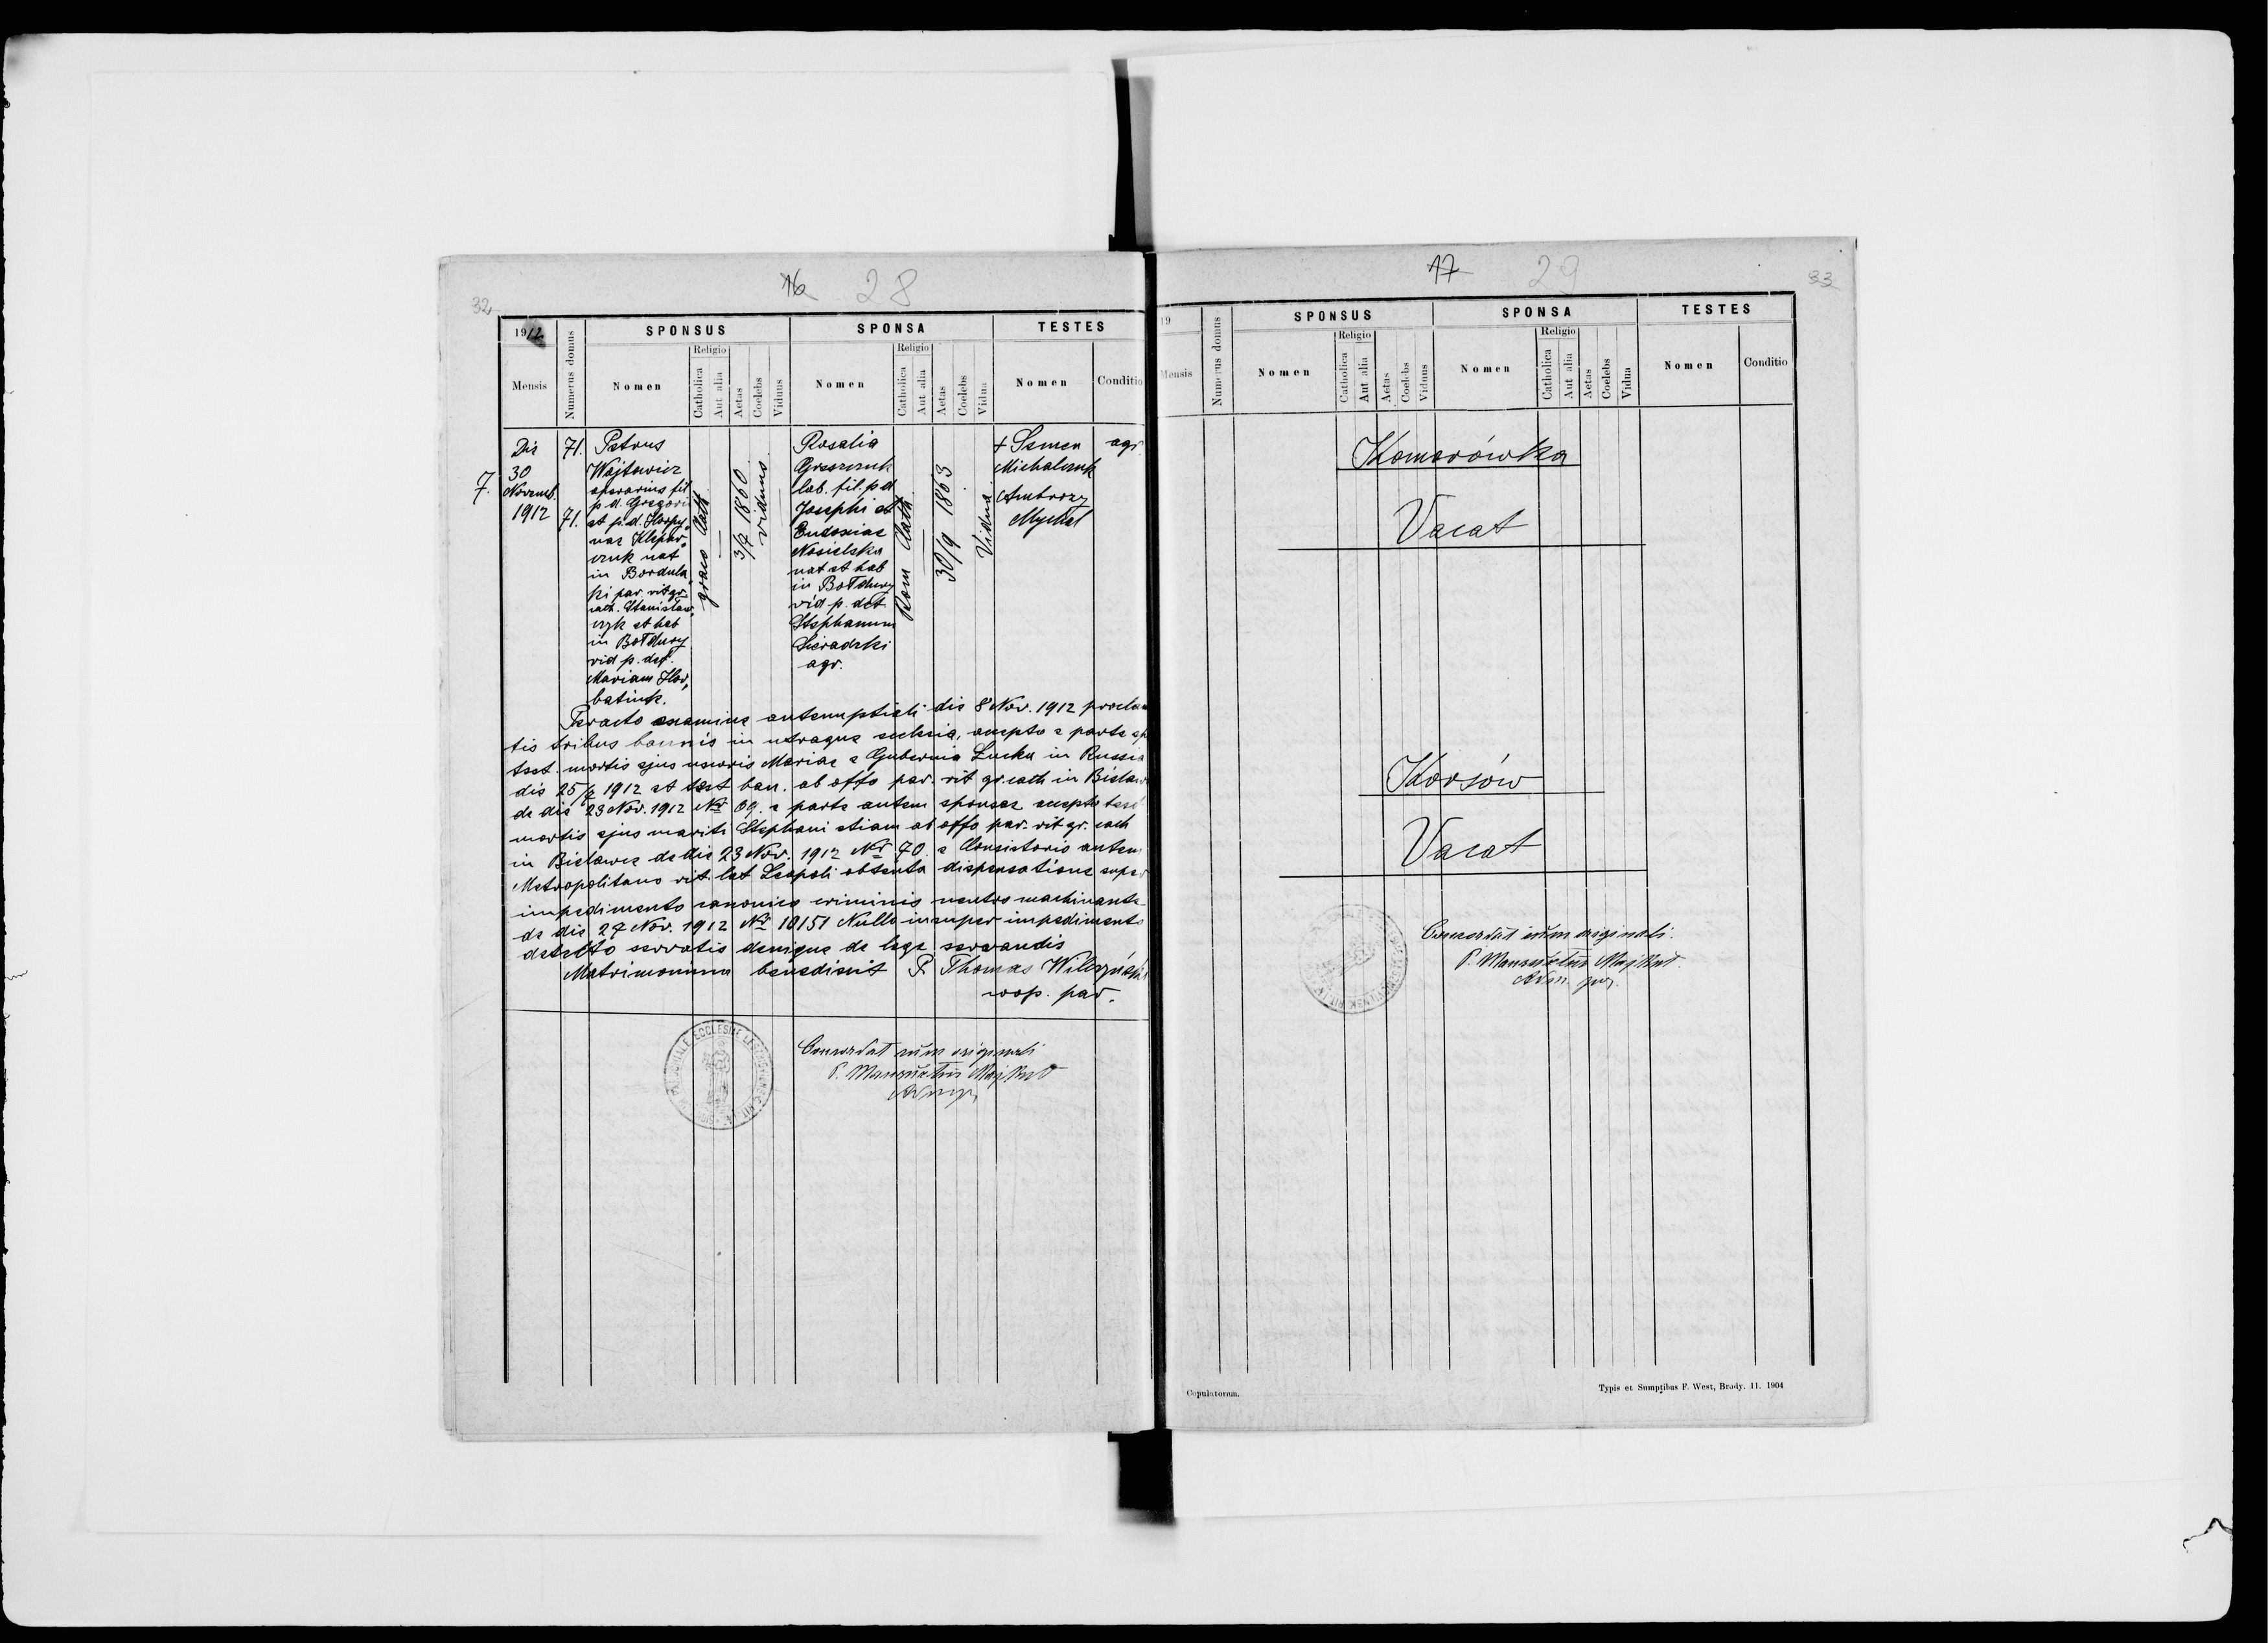 16 28
32
1912
Mensis
Numerus domus
SPONSUS
Nomen
Religio
Catholica
Aut alia
Aetas
Coelebs
Viduus
SPONSA
Nomen
Religio
Catholica
Aut alia
Aetas
Coelebs
Vidua
TESTES
Nomen
Conditio
7.
Die
30
Novemb.
1912
71.
71.
Petrus
Wojtowicz
operarius fil.
p. d. Gregorii
et p. d. Horpy„
nae Klepar„
czuk nat
in Bordula„
ki par. rit gr.
cath. Stanisław„
czyk et hab
in Bołdury
vid p. def.
Mariam Hor„
batiuk.
graeco Cath
3/7 1860
viduus
Rosalia
Greszczuk
lab. fil. p d
Josephi et
Eudoxiae
Nosielska
nat et hab
in Bołdury
vid p. def
Stephanum
Sieradzki
agr.
Rom Cath
30/9 1863
Vidua
+ Semen
Michalczuk
Ambroży
Mychal
agr
Peracto examine antenuptiali die 8 Nov. 1912 proclama
tis tribus bannis in utraque ecclesia, accepto e parte sp
test. mortis ejus uxoris Mariae e Gubernia Łucka in Russia
die 25/ 1912 et test ban. ab offo par. rit gr. cath in Bielaw
de die 23 Nov. 1912 Nr 69. e parte autem sponsae accepto test
mortis ejus mariti Stephani etiam ab offo par. rit gr. cath
in Bielawce de die 23 Nov. 1912 Nr 70. e Consistorio autem
Metropolitano rit. lat Leopoli obtenta dispensatione super
impedimento canonico criminis neutro machinante
de die 27 Nov. 1912 Nr 10151 Nullo insuper impedimento
detecto servatis denique de lege servandis
Matrimonium benedixit P. Thomas Wilczyński
coop. par.
Concordat cum originali
P. Mansuetus
17 29
33
19
Mensis
Numerus domus
SPONSUS
Nomen
Religio
Catholica
Aut alia
Aetas
Coelebs
Viduus
SPONSA
Nomen
Religio
Catholica
Aut alia
Aetas
Coelebs
Vidua
TESTES
Nomen
Conditio
Komarówka
Vacat
Korsów
Vacat
Concordat cum originali.
P. Mansuetus
Adm.
Copulatorum.
Typis et Sumptibus F. West, Brody. 11. 1904